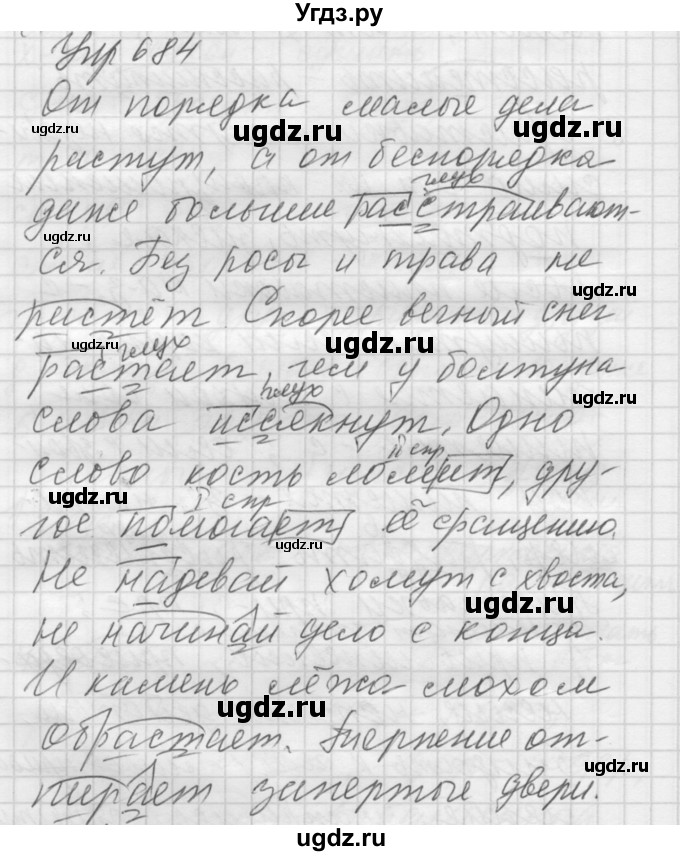 Угдз.ру
Упр 684
От порядка малые дела
ugdz.ru ugdz.ru ugdz.ru
растут, а от беспорядка
глух
даже больше расстраивают-
ugdz.ru
ся. Без росы и трава не
ugdz.ru
растёт. Скорее вечный снег
ugdz.ru
глух
растает, чем у болтуна
ugdz.ru ugdz.ru
глух
слова иссякнут. Одно
II спр
слово кость ломит, дру-
ugdz.ru
I спр
гое помогает её сращению.
ugdz.ru
Не надевай хомут с хвоста,
ugdz.ru
не начинай дело с конца.
И камень лёжа мохом
ugdz.ru
обрастает. Терпение от-
ugdz.ru
пирает запертые двери.
ugdz.ru